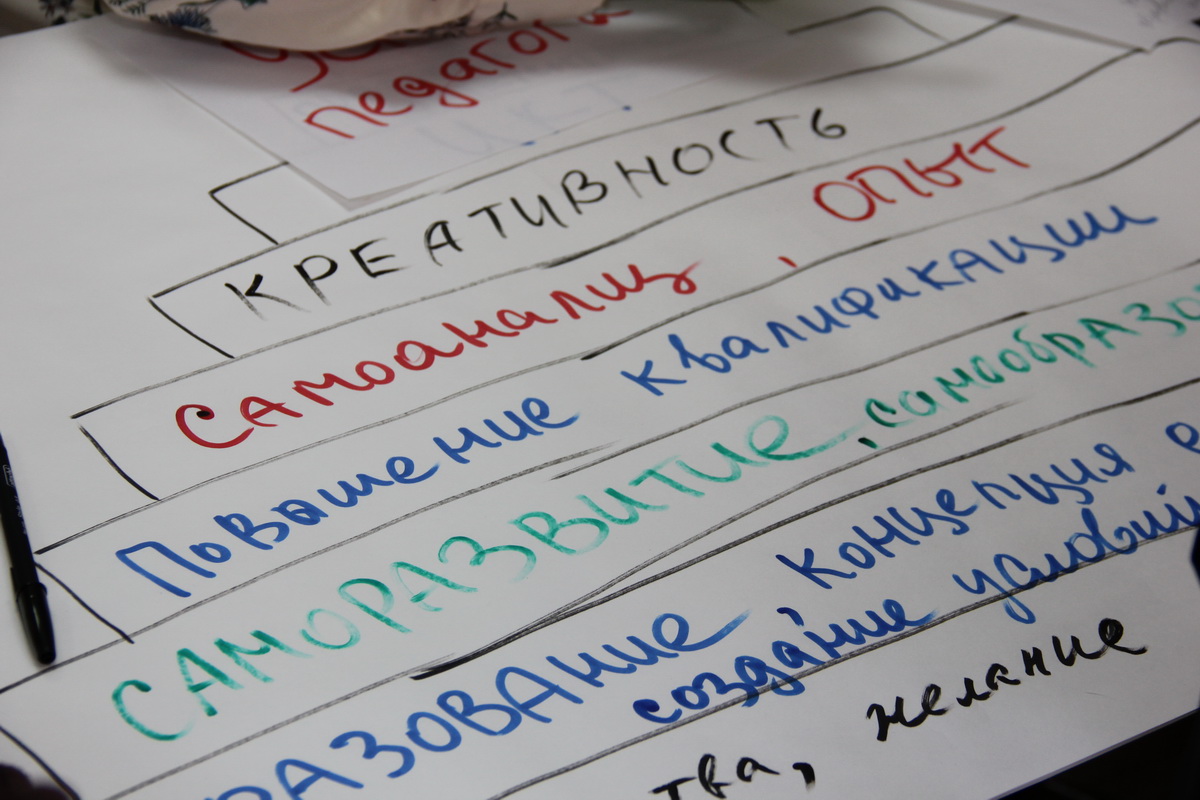 педагога
КРЕАТИВНОСТЬ
Самоанализ, ОПЫТ
Повышение квалификации
САМОРАЗВИТИЕ, самообразо
РАЗОВАНИЕ концепция
создание условий
тва, желание